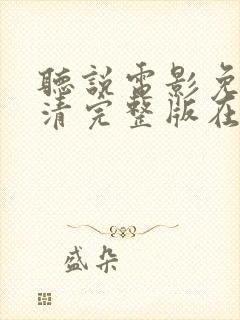 聽說電影免
清完整版在
盛朵